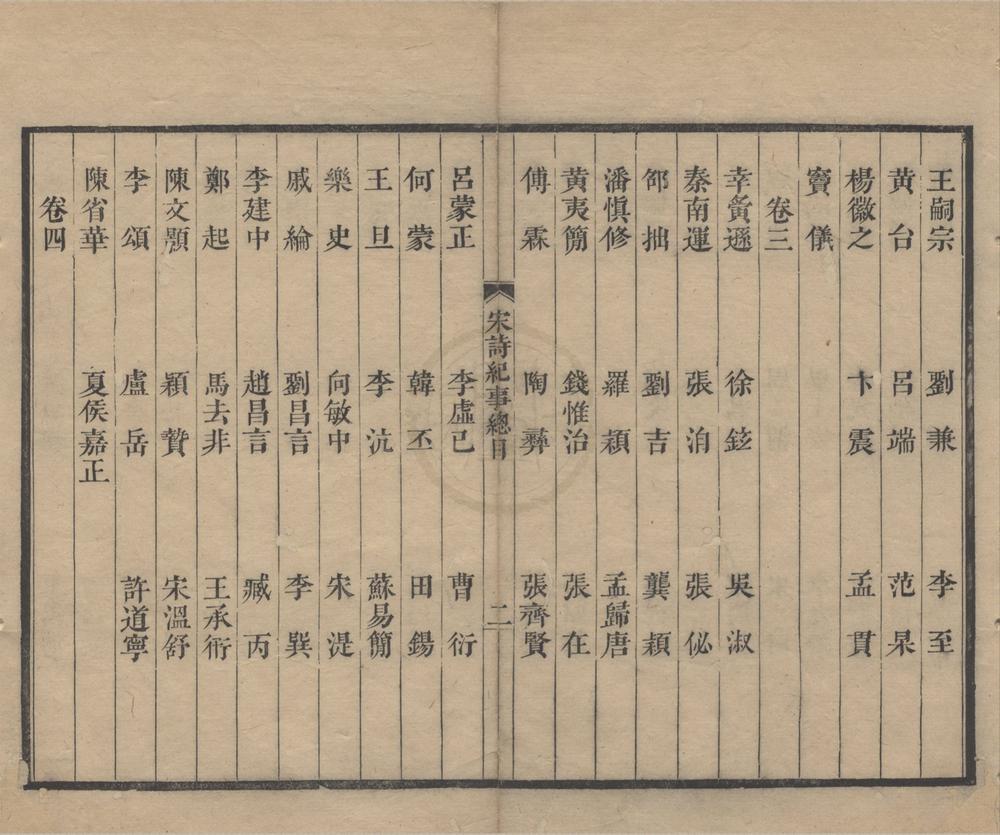 王嗣宗 劉兼 李至
黃台 呂端 范杲
楊徽之 卞震 孟貫
竇儀
卷三
幸夤遜 徐鉉 吳淑
秦南運 張洎 張佖
邵拙 劉吉 龔穎
潘慎修 羅穎 孟歸唐
黃夷簡 錢惟治 張在
傅霖 陶彝 張齊賢
宋詩紀事總目 二
呂蒙正 李虛己 曹衍
何蒙 韓丕 田錫
王旦 李沆 蘇易簡
樂史 向敏中 宋湜
戚綸 劉昌言 李巽
李建中 趙昌言 臧丙
鄭起 馬去非 王承衎
陳文顥 穎贄 宋溫舒
李頌 盧岳 許道寧
陳省華 夏侯嘉正
卷四